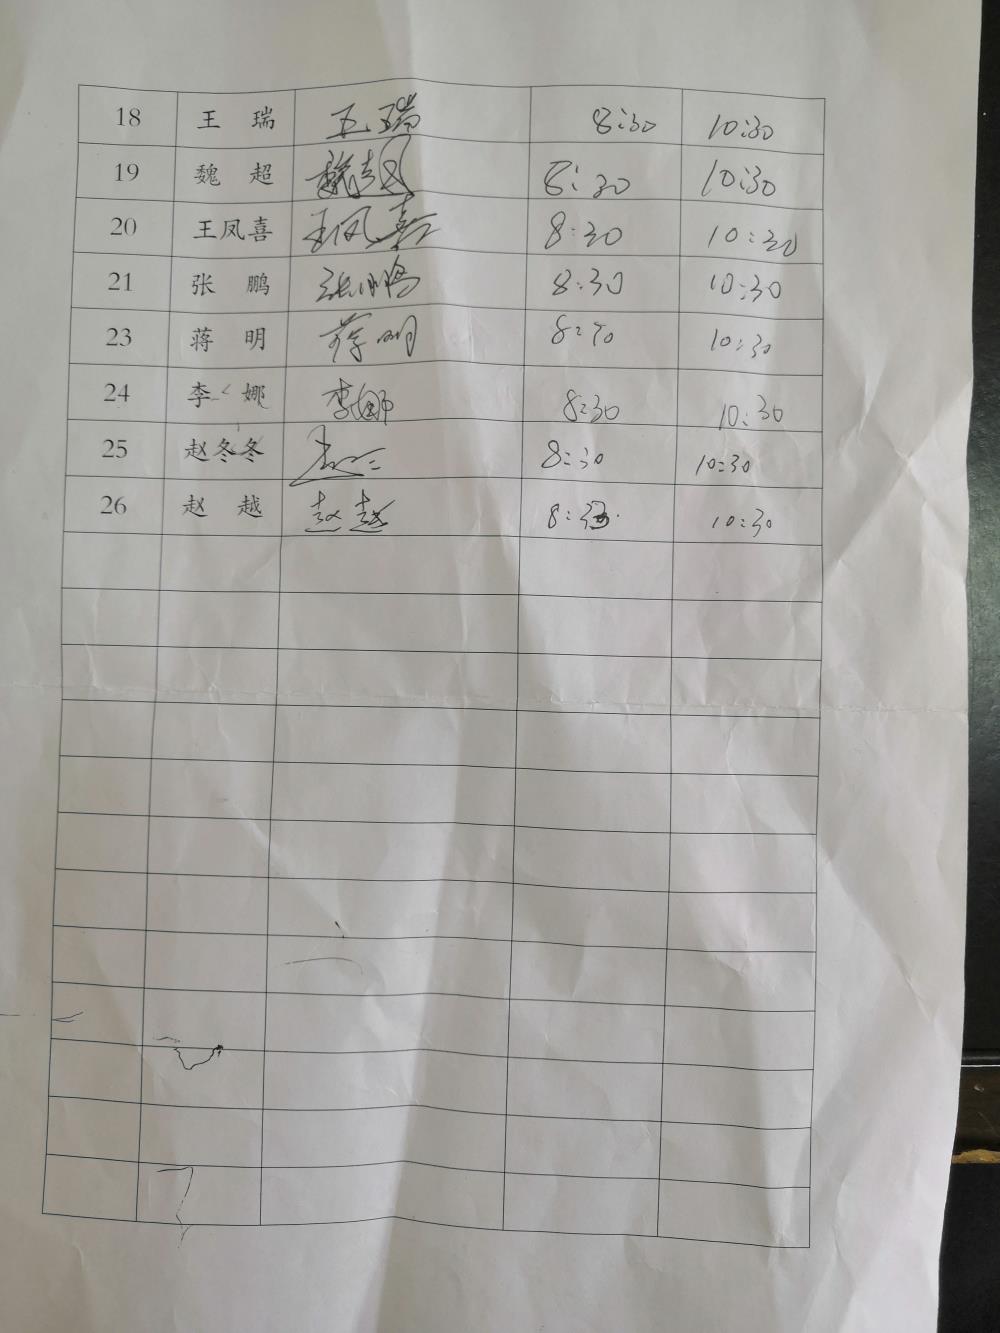 18 王瑞 王瑞 8:30 10:30
19 魏超 魏超 8:30 10:30
20 王凤喜 王凤喜 8:30 10:30
21 张鹏 张鹏 8:30 10:30
23 蒋明 蒋明 8:30 10:30
24 李娜 李娜 8:30 10:30
25 赵冬冬 8:30 10:30
26 赵越 赵越 8:30 10:30